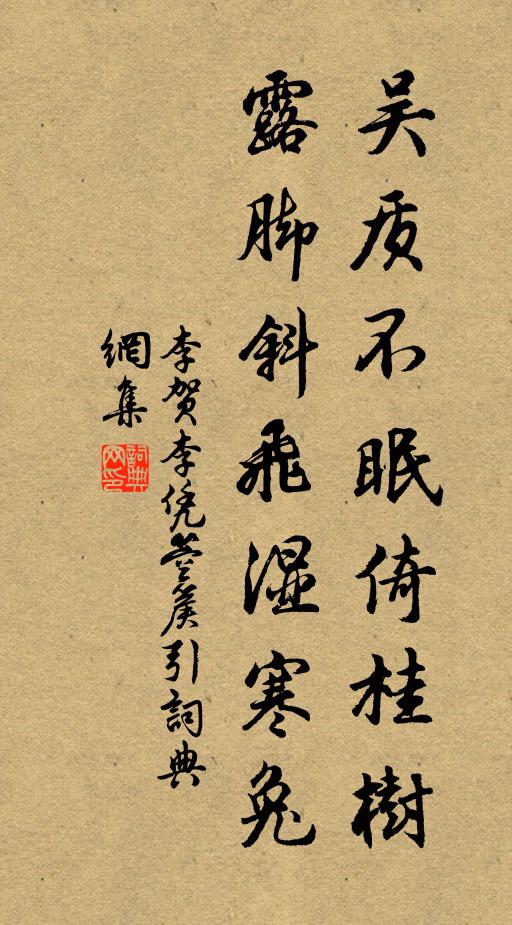 吴质不眠倚桂樹
露脚斜飛湿寒兔
李贺李凭箜篌引詞典
網集
詞典
网印